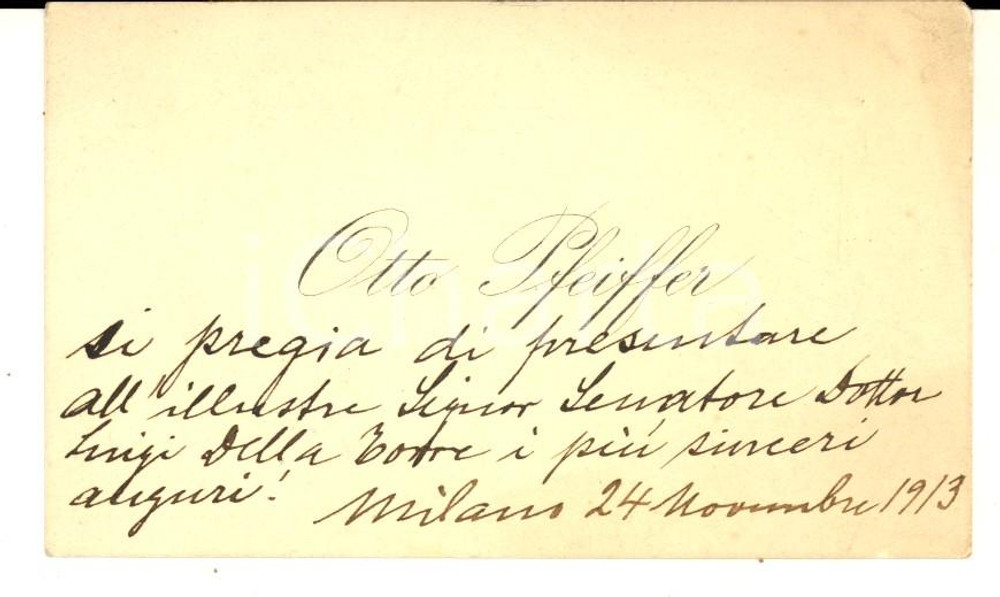 Otto Pfeiffer
si pregia di presentare
all'illustre Signor Senatore Dottor
Luigi Della Torre i più sinceri
auguri!
Milano 24 Novembre 1913